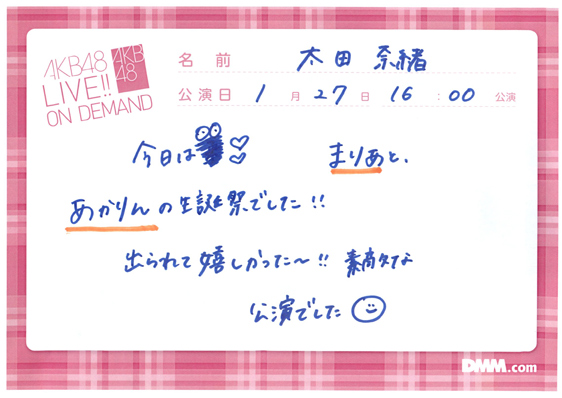 AKB48
LIVE!!
ON DEMAND
AKB
48
名前 太田 奈緒
公演日 1月27日 16:00 公演
今日は まりあと、
あかりんの生誕祭でした!!
出られて嬉しかった〜!! 素敵な
公演でした
DMM.com